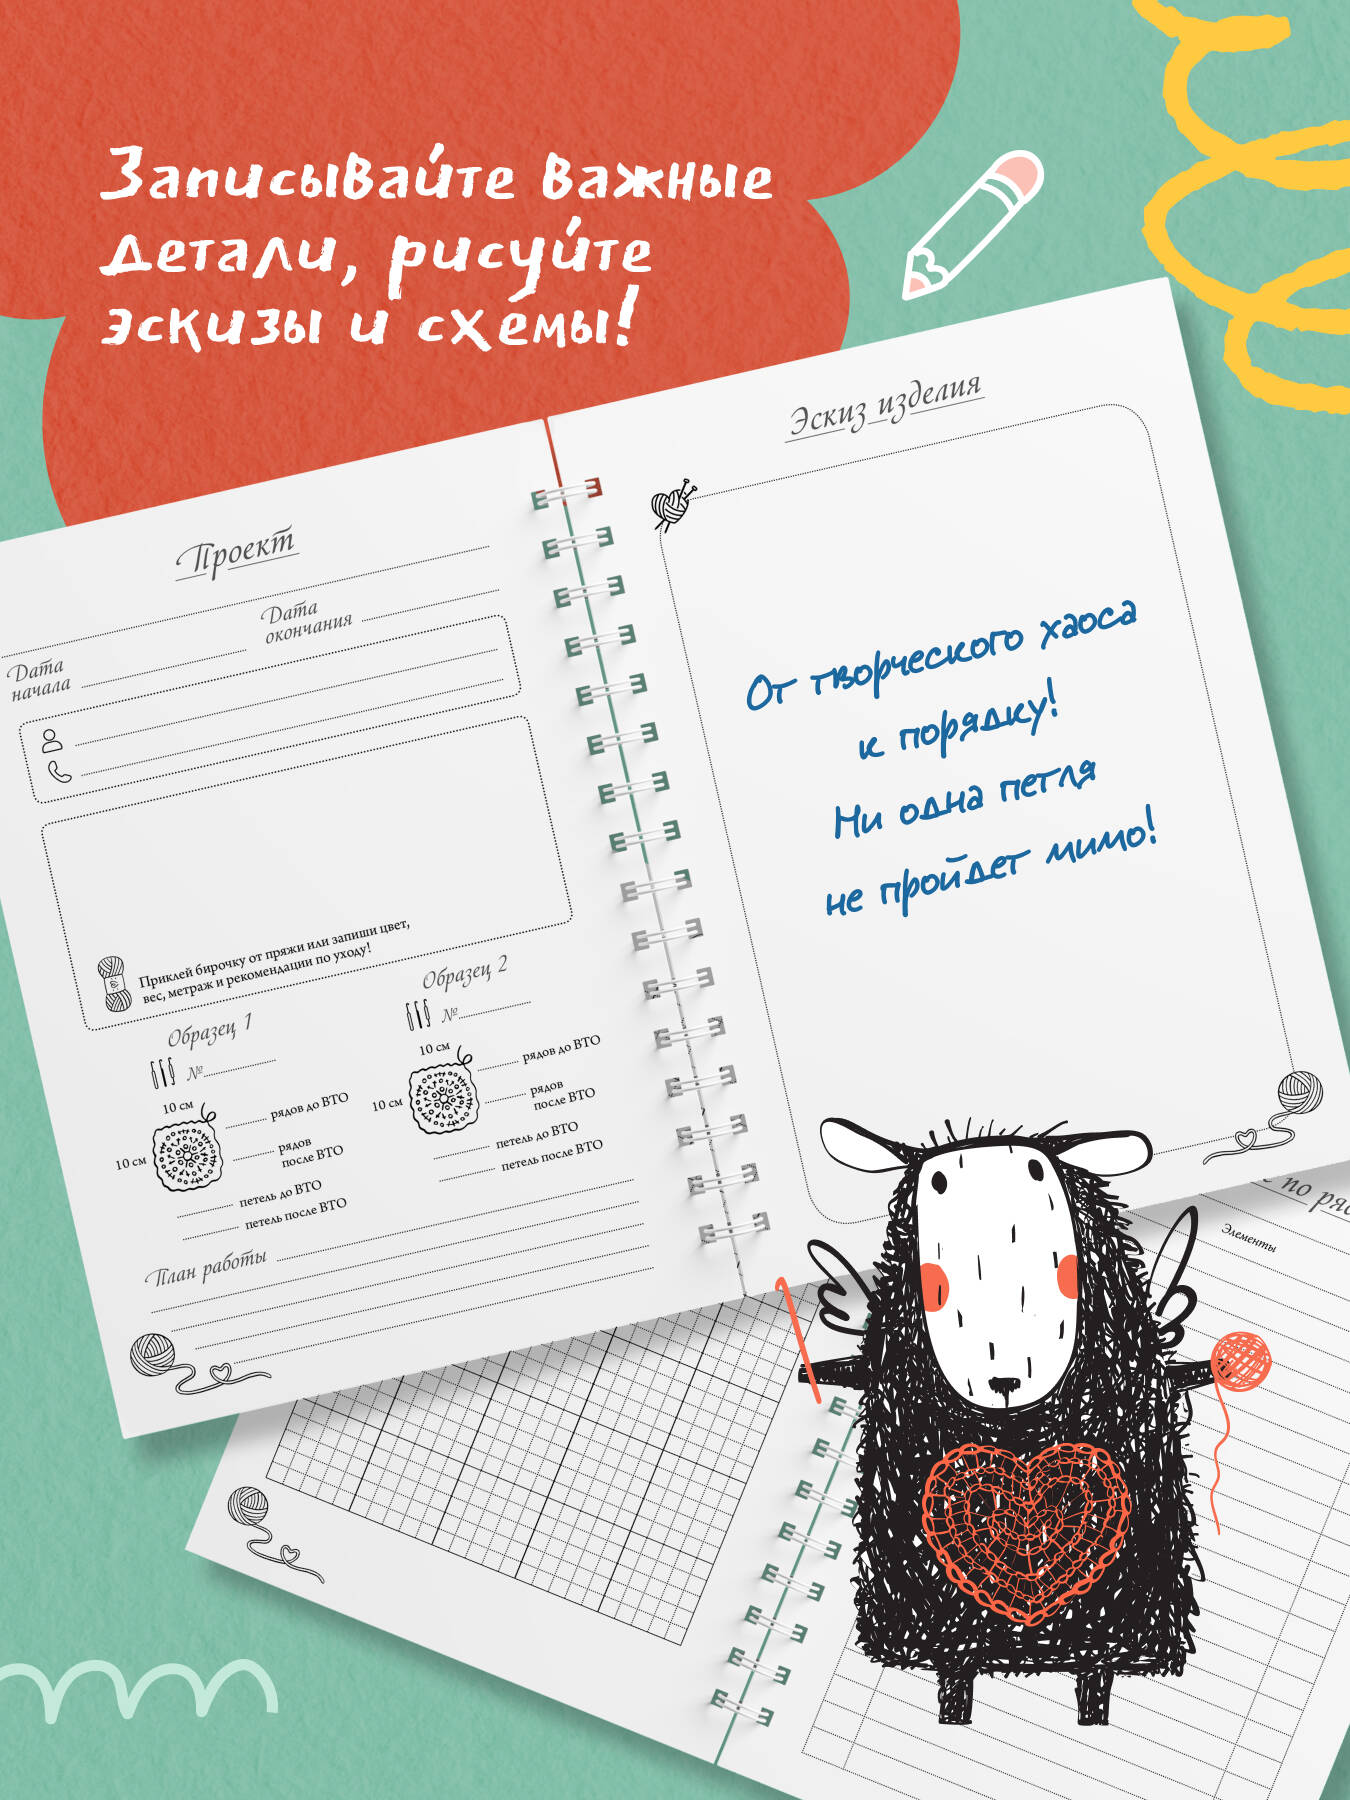 Записывайте важные
детали, рисуйте
эскизы и схемы!
Проект
Дата
начала
Дата
окончания
Приклей бирочку от пряжи или запиши цвет,
вес, метраж и рекомендации по уходу!
Образец 1
№
10 см
10 см
рядов до ВТО
рядов
после ВТО
петель до ВТО
петель после ВТО
Образец 2
№
10 см
10 см
рядов до ВТО
рядов
после ВТО
петель до ВТО
петель после ВТО
План работы
Эскиз изделия
От творческого хаоса
к порядку!
Ни одна петля
не пройдет мимо!
по
Элементы